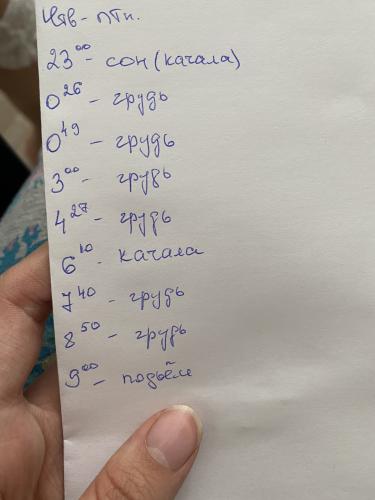 Чтв - птн.
23⁰⁰ - сон (качала)
0²⁶ - грудь
0⁴⁹ - грудь
3⁰⁰ - грудь
4²⁷ - грудь
6¹⁰ - качала
7⁴⁰ - грудь
8⁵⁰ - грудь
9⁰⁰ - подъём